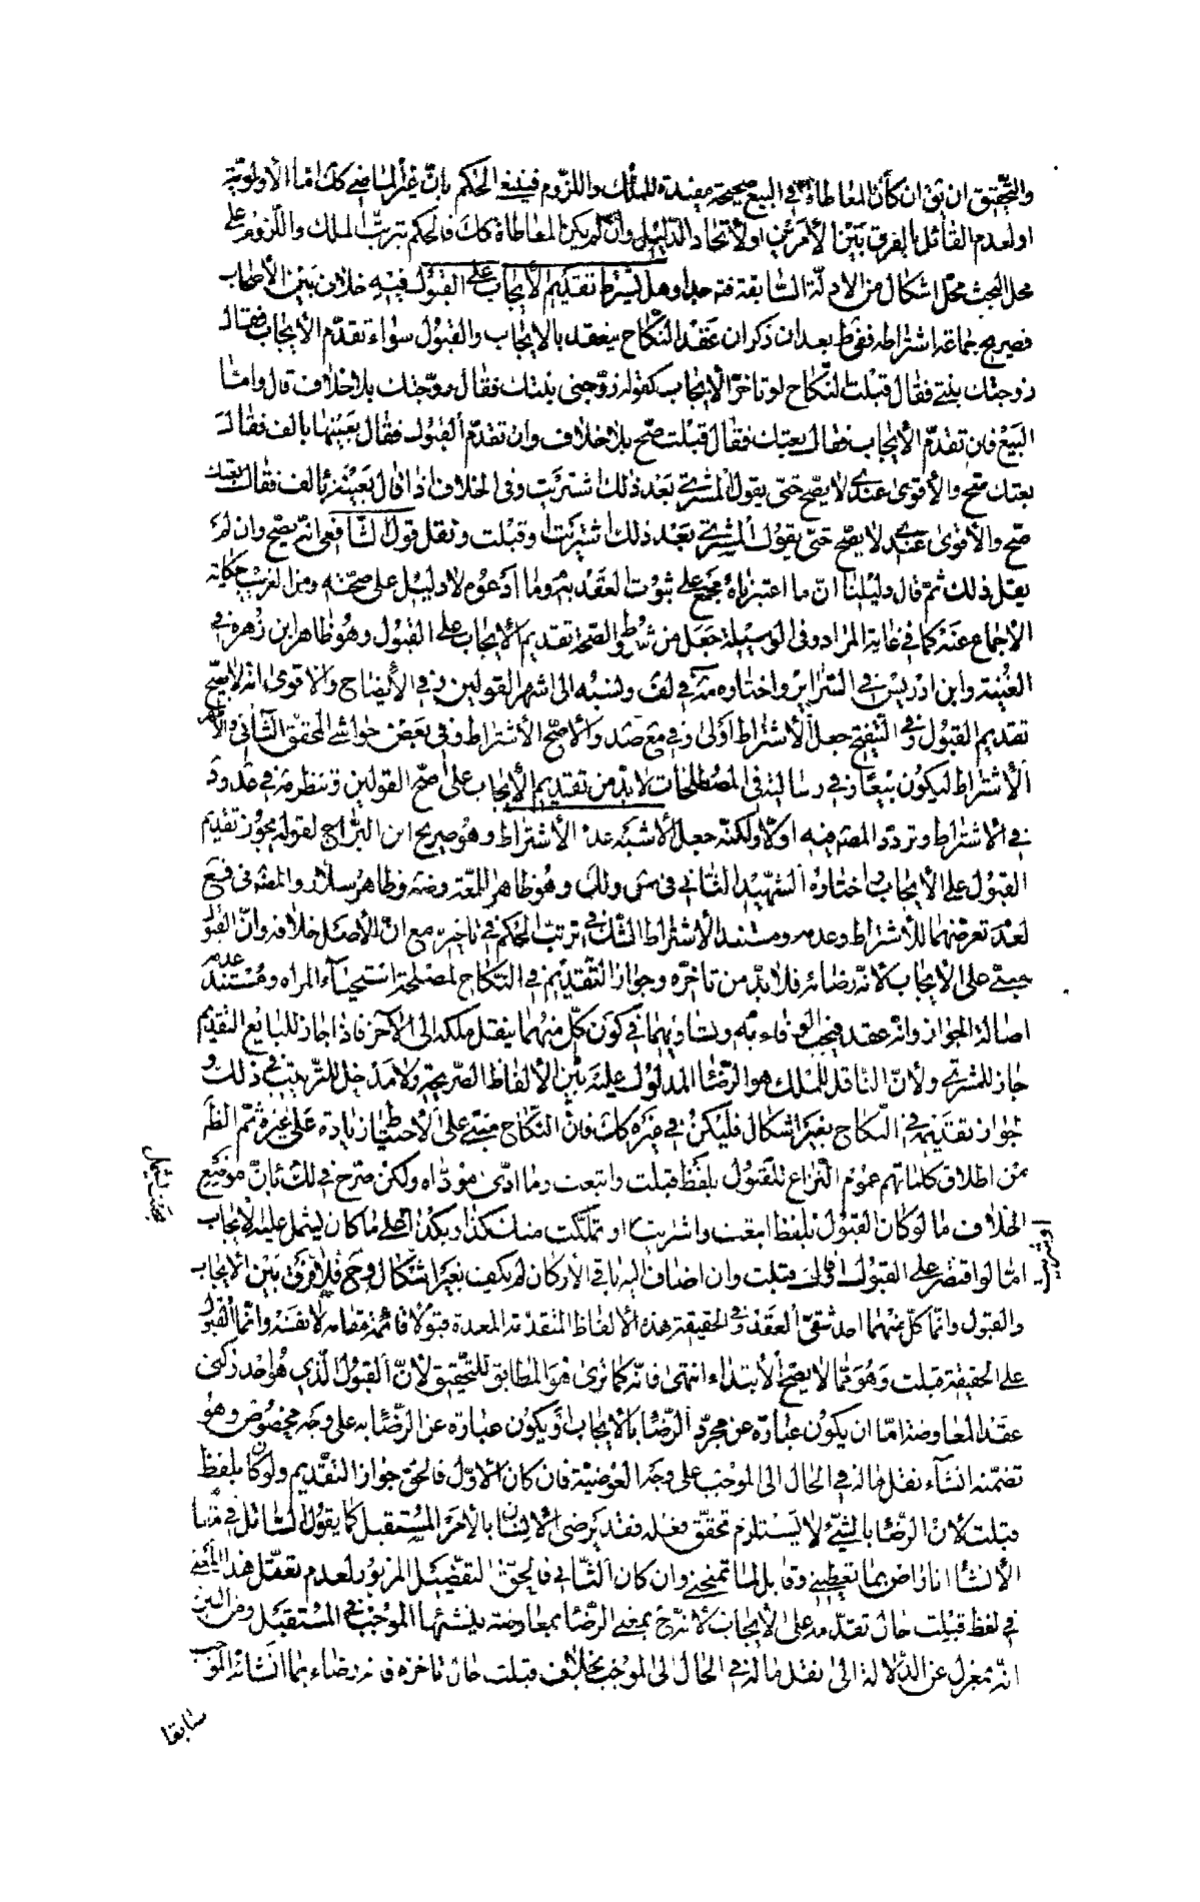 والتحقيق ان يق ان كان المعاطاة في البيع صحيحة مفيدة للملك واللزوم فينبغي الحكم بان غير الماضي كك اما الاولوية
او لعدم القائل بالفرق بين الامرين او لاتحاد الدليل وان لم يكن المعاطاة كك فالحكم بترتب الملك واللزوم على
محل البحث محل اشكال من الادلة السابقة فتدبر وهل يشترط تقديم الايجاب على القبول فيه خلاف بين الاصحاب
فصريح جماعة اشتراطه ففي ط بعد ان ذكر ان عقد النكاح ينعقد بالايجاب والقبول سواء تقدم الايجاب فقال
زوجتك بنتي فقال قبلت النكاح او تاخر الايجاب كقوله زوجني بنتك فقال زوجتك بلا خلاف قال واما
البيع فان تقدم الايجاب فقال بعتك فقال قبلت صح بلا خلاف وان تقدم القبول فقال بعنيها بالف فقال
بعتك صح والاقوى عندي لا يصح حتى يقول المشتري بعد ذلك اشتريت وفى الخلاف اذا قال بعنيه بالف فقال بعتك
صح والاقوى عندي لا يصح حتى يقول المشتري بعد ذلك اشتريت او قبلت ونقل قول الشافعى انه يصح وان لم
يقل ذلك ثم قال دليلنا ان ما اعتبرناه مجمع على ثبوت العقد به وما ادعوه لا دليل على صحته ومن الغريب حكاية
الاجماع عنه كما في غاية المراد وفى الوسيلة جعل من شروط الصحة تقديم الايجاب على القبول وهو ظاهر ابن زهرة في
الغنية وابن ادريس في السرائر واختاره مة في لف ونسبه الى اشهر القولين وفي الايضاح والاقوى انه لا يصح
تقديم القبول وفي التنقيح جعل الاشتراط اولى وفي مع صد والاصح الاشتراط وفى بعض حواشي المحقق الثانى والاظهر
الاشتراط ليكون بيعا وفي رسالته فى المصطلحات لا بد من تقديم الايجاب على اصح القولين ونظر مة في عد ود
في الاشتراط وتردد المصه فيه اولا ولكنه جعل الاشبه عدم الاشتراط وهو صريح ابن البراج لقوله يجوز تقديم
القبول على الايجاب واختاره الشهيد الثانى فى لك وهو ظاهر اللمعة وضه وظاهر سلار والمصه فى فع
لعدم تعرضهما للاشتراط وعدمه ومستند الاشتراط الشك في ترتب الحكم في تاخيره مع ان الاصل خلافه وان القبول
مبنى على الايجاب لانه رضا به فلا بد من تاخره وجواز التقديم في النكاح لمصلحة استحياء المراه ومستند عدمه
اصالة الجواز وانه عقد فيجب الوفاء به وتساويهما في كون كل منهما ينقل ملكه الى الآخر فاذا جاز للبايع التقديم
جاز للمشتري ولان الناقل للملك هو الرضا المدلول عليه بين الالفاظ الصريحة ولا مدخل للترتيب في ذلك و
لجواز تقديمه في النكاح بغير اشكال فليكن في غيره كك فان النكاح مبنى على الاحتياط زيادة على غيره ثم الظ
من اطلاق كلماتهم عموم النزاع للقبول بلفظ قبلت وابتعت وما ادى موداه ولكن صرح في لك بان موضع
الخلاف ما لو كان القبول بلفظ ابتعت واشتريت او تملكت منك كذا وبكذا الى ما كان ليشمل عليه الايجاب
اما لو اقتصر على القبول او قال قبلت وان اضاف اليه باقي الاركان لم يكف بغير اشكال وح فلا فرق بين الايجاب
والقبول وانما كل منهما احد شقى العقد وفي الحقيقة هذه الالفاظ المتقدمة المعدة قبولا قائمة مقامه لا نفسه وانما القبول
على الحقيقة قبلت وهو مما لا يصح الابتداء انتهى فانه كما ترى هو المطابق للتحقيق لان القبول الذي هو احد ركنى
عقد المعاوضة اما ان يكون عبارة عن مجرد الرضا بالايجاب او يكون عبارة عن الرضا به على وجه مخصوص وهو
تضمنه انشاء نقل ماله في الحال الى الموجب على وجه العوضية فان كان الاول فالحق جواز التقديم ولو كان بلفظ
قبلت لان الرضا بالشئ لا يستلزم تحقق فعله فقد يرضى الانسان بالامر المستقبل كما يقول السائل في مقام
الانشا انا راض بما تعطيني وقابل لما تمنحني وان كان الثانى فالحق التفصيل المزبور لعدم تعقل هذا المعنى
في لفظ قبلت حال تقدمه على الايجاب لانه ح بمعنى الرضا بمعاوضة ينشئها الموجب في المستقبل ومن البين
انه بمعزل عن الدلالة الى نقل ماله في الحال الى الموجب بخلاف قبلت حال تاخره فانه رضاء بما انشائه الموجب
سابقا